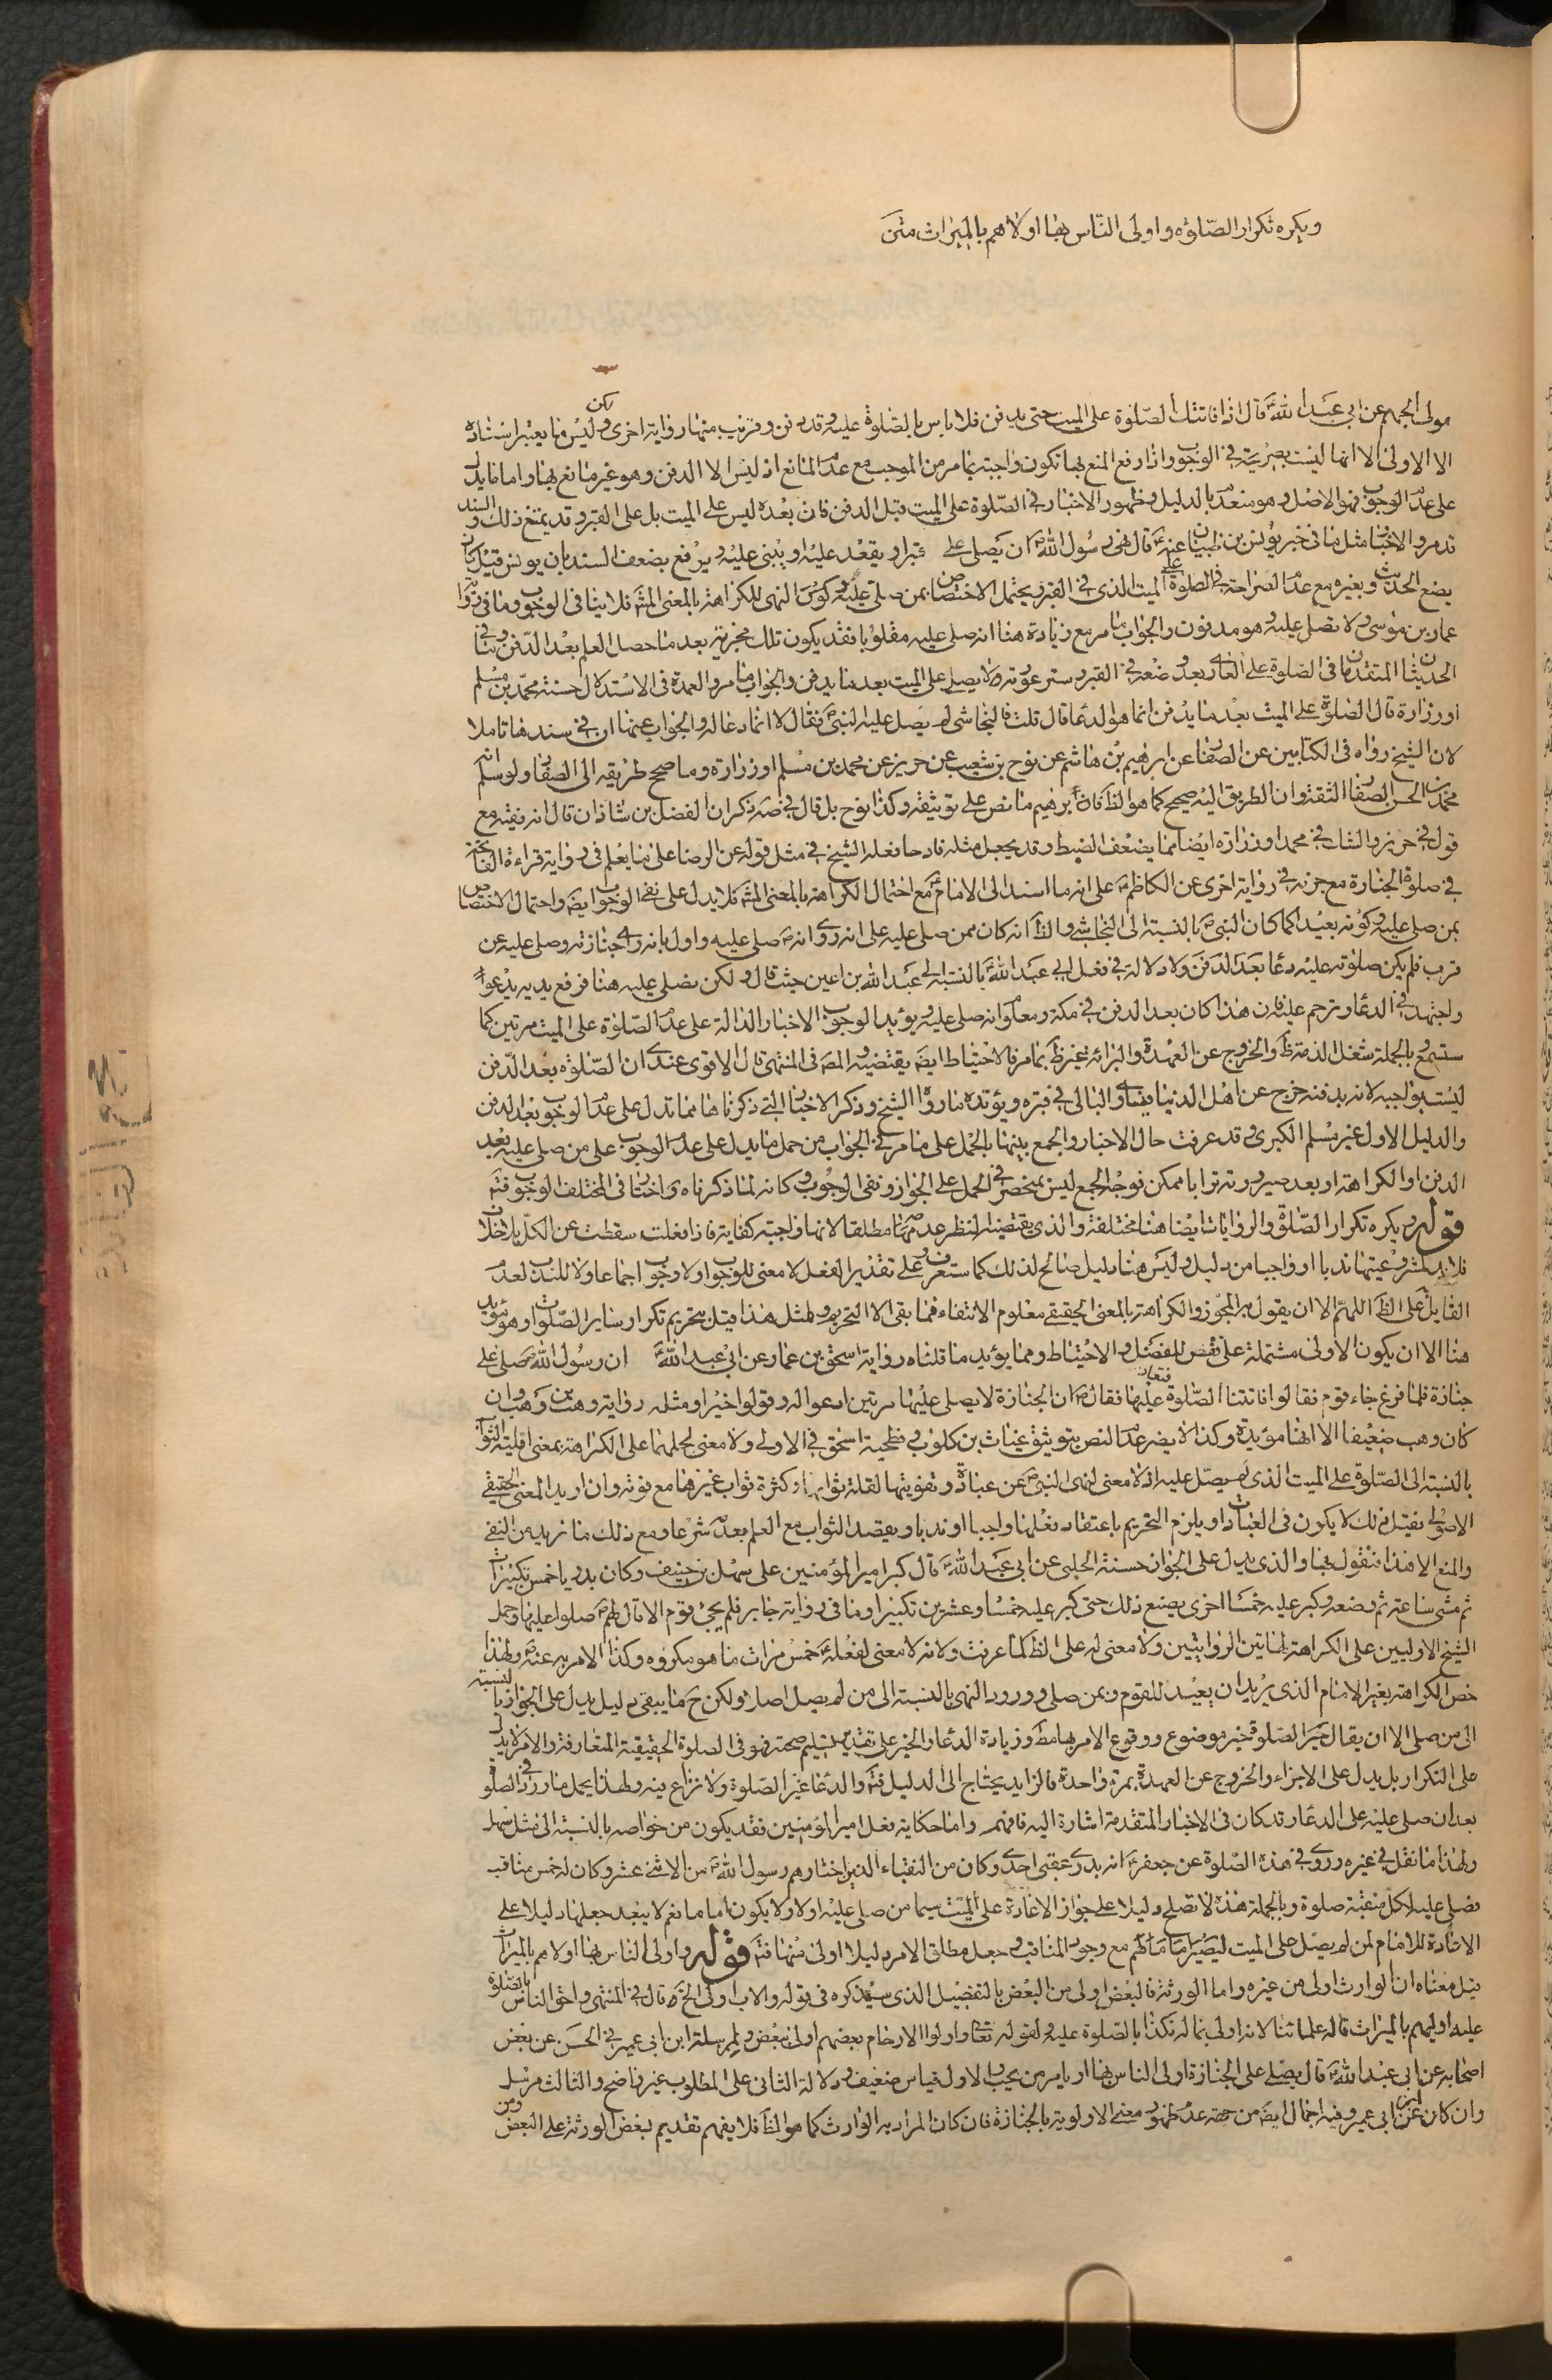 ويكره تكرار الصّلوة واولى النّاس بها اولاهم بالميراث متن
مولى الجهم عن ابى عبد الله ع قال اذا فاتتك الصّلوة على الميت حتى يدفن فلا باس بالصّلوة عليه وقد دفن وقريب منها رواية اخرى ولكن ليس فيها يعتبر اسناده
الا الاولى الا انها ليست بصريحة في الوجوب واذا رفع المنع بها تكون واجبة بما مر من الموجب مع عدم المانع اذ ليس الا الدفن وهو غير مانع بها واما ما يدل
على عدم الوجوب فهو الاصل وهو منعدم بالدليل وظهور الاخبار في الصّلوة على الميت قبل الدفن فان بعده ليس على الميت بل على القبر وقد يمنع ذلك والسند
قد مر والاخبار مثل ما فى خبر يونس بن ظبيان عنه ع قال نهى رسول الله ص ان يصلى على قبر او يقعد عليه او يبنى عليه ويرفع بضعف السند بان يونس قيل كان
يضع الحديث وبغيره مع عدم الصراحة في الصلوة على الميت الذى في القبر ويحتمل الاختصاص بمن صلى عليه وكون النهى للكراهة بالمعنى المشهور فلا ينافى الوجوب وما فى رواية
عمار بن موسى ولا يصلى عليه وهو مدفون والجواب ما مر مع زيادة هنا انه صلى عليه مقلوبا فقد يكون تلك مجزية بعد ما حصل العلم بعد الدّفن وفى
الحديثان المتقدمان فى الصّلوة على العارى بعد وضعه في القبر وستر عورته ولا يصلى على الميت بعد ما يدفن والجواب ما مر والعمدة فى الاستدلال حسنة محمّد بن مسلم
او زرارة قال الصّلوة على الميت بعد ما يدفن انما هو الدعا قال قلت فالنجاشى لم يصل عليه النبى ص فقال لا انما دعا له والجواب عنها ان في سندها تاملا
لان الشيخ رواه فى الكتابين عن الصفار عن ابرهيم بن هاشم عن نوح بن شعيب عن حريز عن محمد بن مسلم او زرارة وما صح طريقه الى الصفار ولو سلم انه
محمد بن الحسن الصفار الثقة وان الطريق اليه صحيح كما هو الظ فان ابرهيم ما نص على توثيقه وكذا نوح بل قال في صه ذكر ان الفضل بن شاذان قال انه فقيه مع
قول في حريز والشك في محمد او زرارة ايضا مما يضعف الضبط وقد يجعل مثله قادحا فعله الشيخ في مثل قوله عن الرضا على ما يعلم فى رواية قراءة الفاتحة
في صلوة الجنازة مع جزمه في رواية اخرى عن الكاظم ع على انه ما اسند الى الامام ع مع احتمال الكراهة بالمعنى المشهور فلا يدل على نفى الوجوب ايضا واحتمال الاختصاص
بمن صلى عليه وكونه بعيدا كما كان النبى ص بالنسبة الى النجاشى والظ انه كان ممن صلى عليه على انه روى انه ص صلى عليه واول بانه راى جنازته وصلى عليه عن
قرب فلم يكن صلوته عليه دعا بعد الدفن ولا دلالة في فعل ابى عبد الله ع بالنسبة الى عبد الله بن اعين حيث قال ولكن نصلى عليه هنا فرفع يديه يدعو
واجتهد في الدعا وترحم عليه فان هذا كان بعد الدفن في مكة ومعلوم انه صلى عليه ويؤيد الوجوب الاخبار الدالة على عدم الصّلوة على الميت مرتين كما
ستسمع وبالجملة شغل الذمة ظ والخروج عن العهدة والبرائة غير ظ بما مر فالاحتياط ايضا يقتضيه والمصـ فى المنتهى قال الاقوى عندى ان الصّلوة بعد الدّفن
ليست بواجبة لانه بدفنه خرج عن اهل الدنيا فيساوى البالى في قبره ويؤيده ما رواه الشيخ وذكر الاخبار التى ذكرناها مما تدل على عدم الوجوب بعد الدفن
والدليل الاول غير مسلم الكبرى وقد عرفت حال الاخبار والجمع بينهما بالحمل على ما مر في الجواب من حمل ما يدل على عدم الوجوب على من صلى عليه بعد
الدفن او الكراهة او بعد صيرورته ترابا ممكن فوجه الجمع ليس بمنحصر في الحمل على الجواز ونفى الوجوب وكانه لما ذكرناه واختار فى المختلف الوجوب فتم
قوله ويكره تكرار الصّلوة والروايات ايضا هنا مختلفة والذى يقتضيه النظر عدمها مطلقا لانها واجبة كفاية فاذا فعلت سقطت عن الكلّ بلا خلاف
فلابد لمشروعيتها ندبا او واجبا من دليل وليس هنا دليل صالح لذلك كما ستعرف وعلى تقدير الفعل لا معنى للوجوب اولا وجوب اجماعا ولا للندب لعدم
القايل على الظ اللهم الا ان يقول به المجوز والكراهة بالمعنى الحقيقى معلوم الانتفاء فما بقى الا التحريم ولمثل هذا قيل بتحريم تكرار ساير الصّلوات وهو مؤيد
هنا الا ان يكون الاولى مشتملة على نقص المفضل والاحتياط ومما يؤيد ما قلناه رواية اسحق بن عمار عن ابى عبد الله ع ان رسول الله ص صلى على
جنازة فلما فرغ جاء قوم فقالوا فاتتنا الصّلوة عليها فقال ص ان الجنازة لا يصلى عليها مرتين ادعوا له وقولوا خيرا ومثله رواية وهب بن وهب وان
كان وهب ضعيفا الا انها مؤيدة وكذا لا يضر عدم النص بتوثيق غياث بن كلوب وفطحية اسحق في الاولى ولا معنى لحملهما على الكراهة بمعنى اقلية الثواب
بالنسبة الى الصّلوة على الميت الذى لم يصل عليه اذ لا معنى لنهى النبى ص عن عبادة وتفويتها لقلة ثوابها وكثرة ثواب غيرها مع فوته وان اريد المعنى الحقيقى
الاصولى فقيل ذلك لا يكون فى العبادات او يلزم التحريم باعتقاد فعلها واجبا او ندبا وبقصد الثواب مع العلم بعدمه شرعا ومع ذلك ما نريد من النفى
والمنع الا هذا فنقول بها والذى يدل على الجواز حسنة الحلبى عن ابى عبد الله ع قال كبر امير المؤمنين على سهل بن حنيف وكان بدريا خمس تكبيرات
ثم مشى ساعة ثم وضعه وكبر عليه خمسا اخرى يصنع ذلك حتى كبر عليه خمسا وعشرين تكبيرا وما فى رواية جابر فلم يجئ قوم الا قال لهم ص صلوا عليها وحمل
الشيخ الاوليين على الكراهة لهاتين الروايتين ولا معنى له على الظ لما عرفت ولانه لا معنى لفعله ع خمس مرات ما هو مكروه وكذا الامر به عنه ص ولهذا
خص الكراهة بغير الامام الذى يريد ان يعيد للقوم وبمن صلى وورود النهى بالنسبة الى من لم يصل اصلا ولكن ح ما يبقى دليل يدل على الجواز بالنسبة
الى من صلى الا ان يقال خبر الصلوة خير موضوع ووقوع الامر بها مط وزيادة الدعا والخبر على تقدير تسليم صحته فهو فى الصلوة الحقيقية المتعارفة والامر لا يدل
على التكرار بل يدل على الاجزاء والخروج عن العهدة بمرة واحدة فالزايد يحتاج الى الدليل فتم والدعا غير الصلوة ولا نزاع فيه ولهذا يحمل ما ورد في الصلوة
بعد ان صلى عليه على الدعا وقد كان فى الاخبار المتقدمة اشارة اليه فافهم واما حكاية فعل امير المؤمنين فقد يكون من خواصه بالنسبة الى مثل سهل
ولهذا ما نقل في غيره وروى في هذه الصّلوة عن جعفر ع انه بدرى عقبى احدى وكان من النقباء الذين اختارهم رسول الله ص من الاثنى عشر وكان له خمس مناقب
فصلى عليه لكل منقبة صلوة وبالجملة هذه لا تصلح دليلا على جواز الاعادة على الميت سيما من صلى عليه اولا ولا يكون اماما نعم لا يبعد جعلها دليلا على
الاعادة للامام لمن لم يصل على الميت ليصير اماما لهم مع وجود المناقب وجعل مطلق الامر دليلا اولى منها فتم قوله واولى الناس بها اولاهم بالميراث
قيل معناه ان الوارث اولى من غيره واما الورثة فالبعض اولى من البعض بالتفضيل الذى سيذكره فى قوله والاب اولى الخ قال في المنتهى واحق الناس بالصّلوة
عليه اوليهم بالميراث قاله علمائنا لانه اولى بماله فكذا بالصّلوة عليه ولقوله تعالى واولوا الارحام بعضهم اولى ببعض ولمرسلة ابن ابى عمير في الحسن عن بعض
اصحابه عن ابى عبد الله ع قال يصلى على الجنازة اولى الناس بها او يامر من يحب والاول قياس ضعيف ودلالة الثانى على المطلوب غير واضح والثالث مرسل
وان كان عن ابن ابى عمير وفيه اجمال ايضا من جهة عدم ظهور معنى الاولوية بالجنازة فان كان المراد به الوارث كما هو الظ فلا يفهم تقديم بعض الورثة على البعض ومن